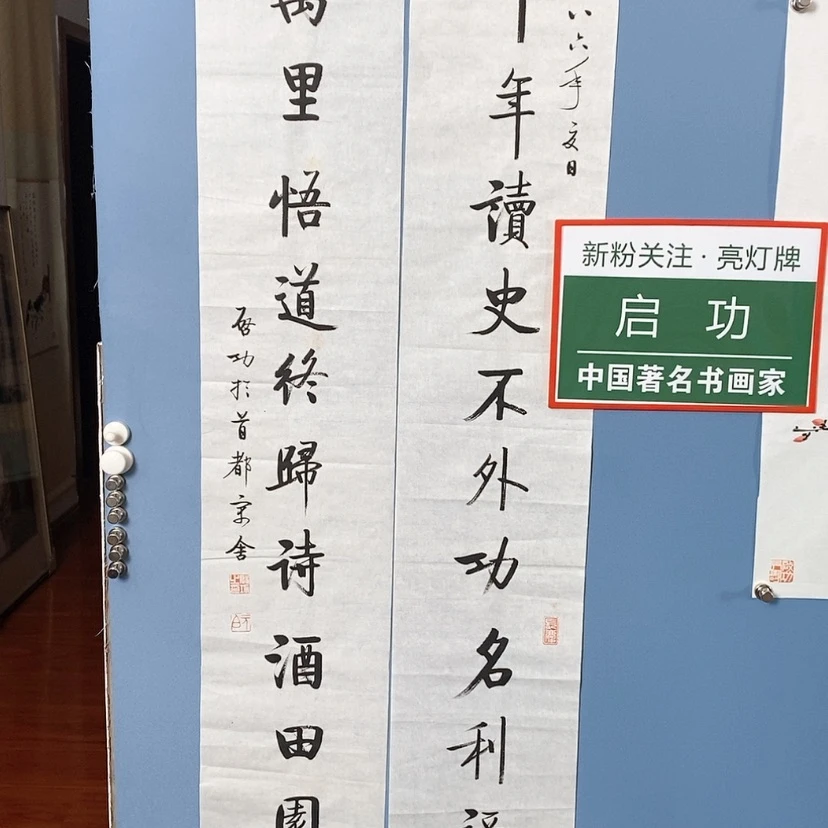 八六年夏日
年讀史不外功名利
萬里悟道終歸诗酒田園
啓功於首都寓舍
新粉关注·亮灯牌
启 功
中国著名书画家